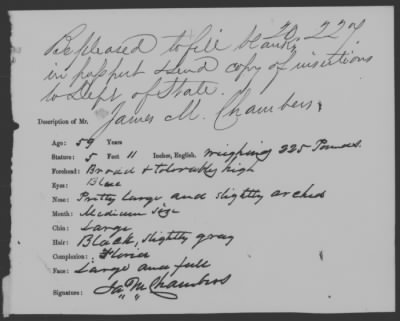 20.227
Be pleased to fill blanks
in passport & send copy of insertions
to Dept. of State.
Description of Mr. James M. Chambers,
Age: 59 Years
Stature: 5 Feet 11 Inches, English. weighing 225 Pounds.
Forehead: Broad & tolerably high
Eyes: Blue
Nose: Pretty large and slightly arched
Mouth: Medium size
Chin: Large
Hair: Black, slightly gray
Complexion: Florid
Face: Large and full
Signature: Jas M Chambers